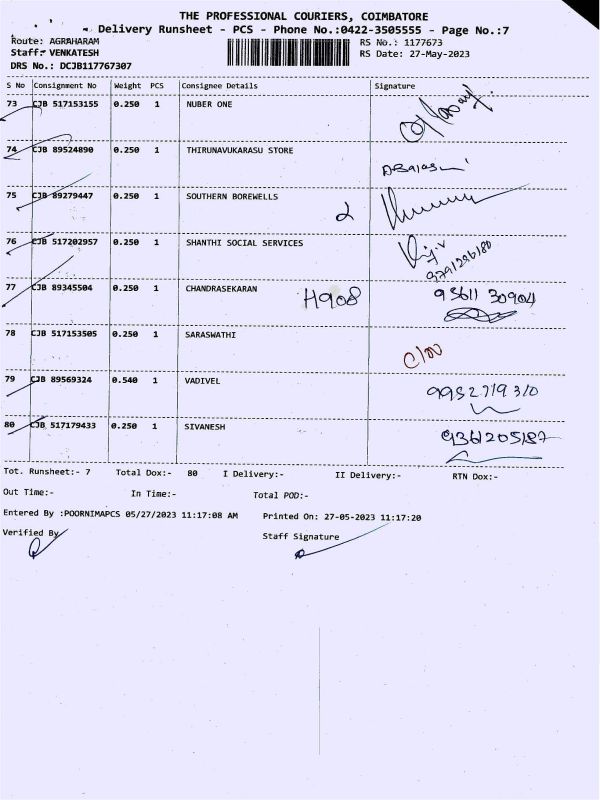 THE PROFESSIONAL COURIERS, COIMBATORE
Delivery Runsheet - PCS - Phone No.:0422-3505555 - Page No.:7
Route: AGRAHARAM RS No.: 1177673
Staff: VENKATESH RS Date: 27-May-2023
DRS No.: DCJB117767307
S No Consignment No Weight PCS Consignee Details Signature
73 CJB 517153155 0.250 1 NUBER ONE
74 CJB 89524890 0.250 1 THIRUNAVUKARASU STORE
75 CJB 89279447 0.250 1 SOUTHERN BOREWELLS
76 CJB 517202957 0.250 1 SHANTHI SOCIAL SERVICES
9791296180
77 CJB 89345504 0.250 1 CHANDRASEKARAN H908 95611 30904
78 CJB 517153505 0.250 1 SARASWATHI
79 CJB 89569324 0.540 1 VADIVEL 9952719310
80 CJB 517179433 0.250 1 SIVANESH 9361205187
Tot. Runsheet:- 7 Total Dox:- 80 I Delivery:- II Delivery:- RTN Dox:-
Out Time:- In Time:- Total POD:-
Entered By :POORNIMAPCS 05/27/2023 11:17:08 AM Printed On: 27-05-2023 11:17:20
Verified By Staff Signature